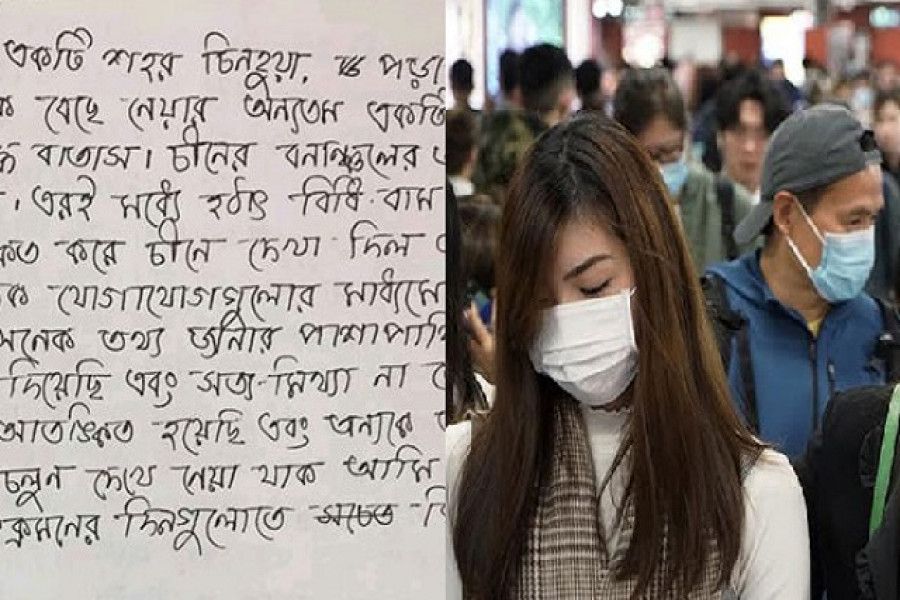 একটি শহর চিনহুয়া, পড়া
ক বেছে নেয়ার অন্যতম একটি
বাতাস। চীনের বনাঞ্চলের
। এরই মধ্যে হঠাৎ বিধি-বাম
কত করে চীনে দেখা দিল
ক যোগাযোগগুলোর মাধ্যমে
অনেক তথ্য জানার পাশাপাশি
দিয়েছি এবং সত্য-মিথ্যা না
আতঙ্কিত হয়েছি এবং অন্যকে
চলুন দেখে নেয়া যাক আমি
ক্রমনের দিনগুলোতে সচেত